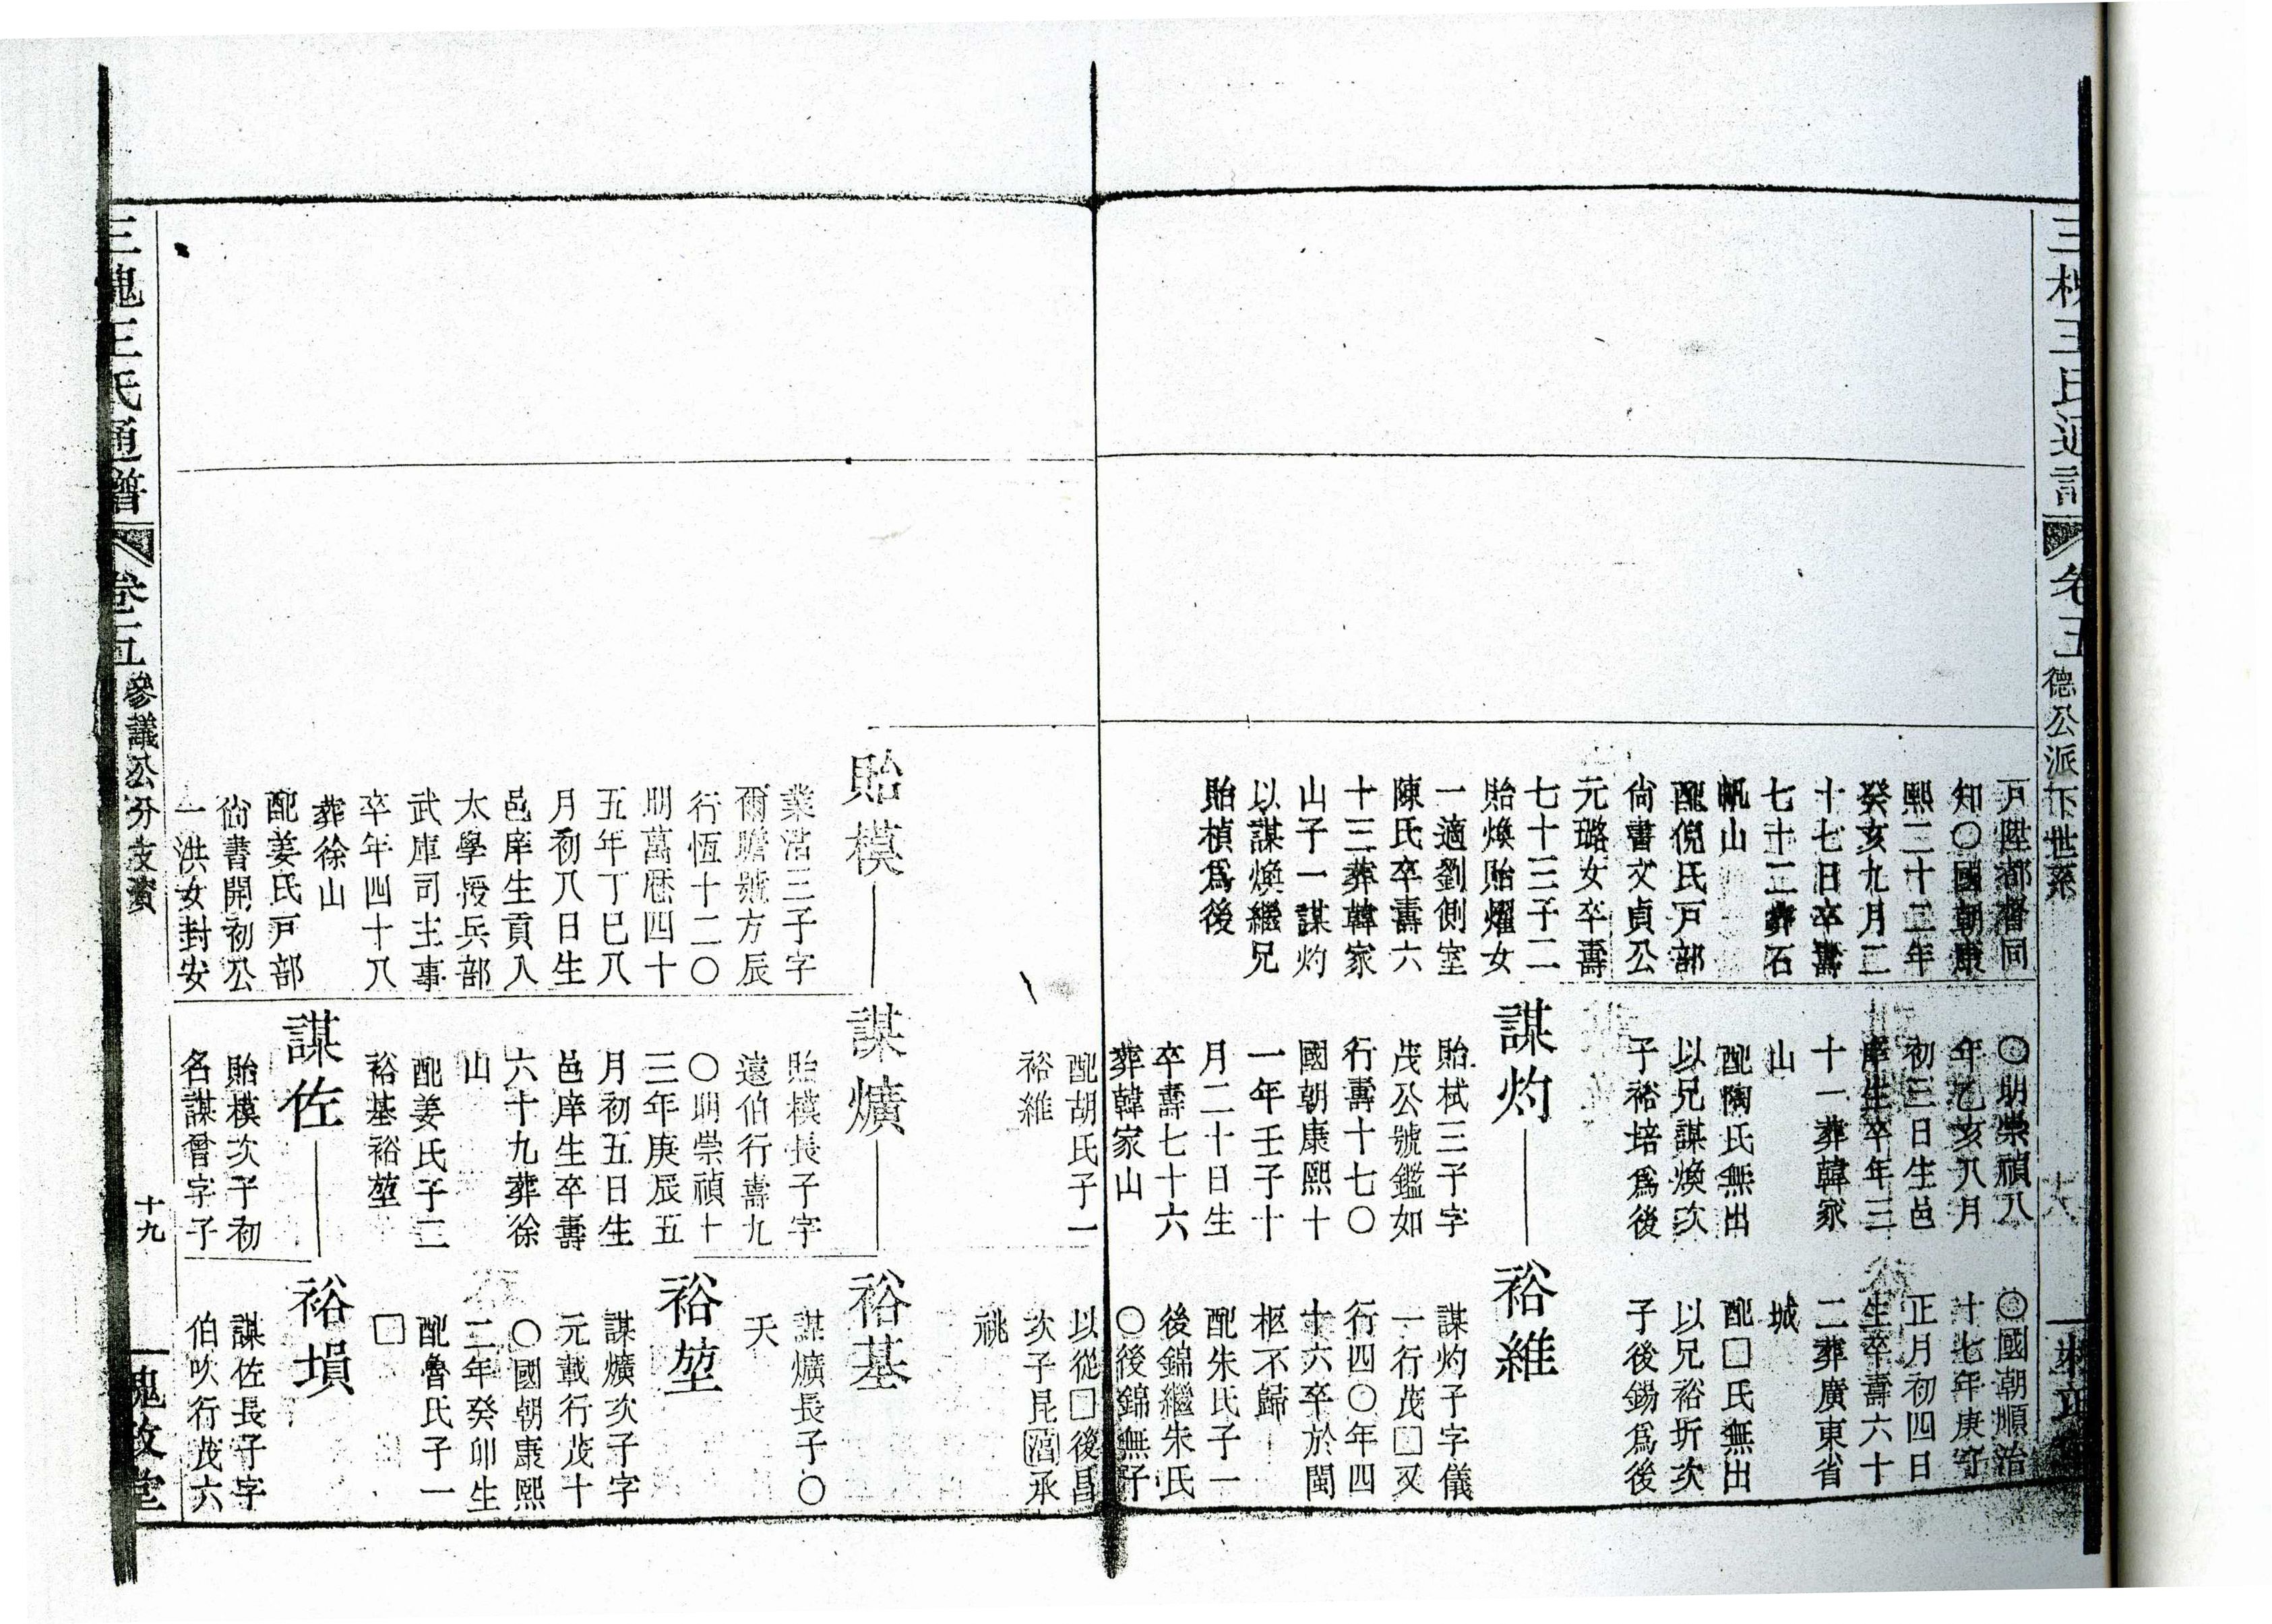 三槐王氏通譜
卷五
德公派下世系
十八
戶陞都督同
知〇國朝康
熙二十二年
癸亥九月二
十七日卒壽
七十二葬石
帆山
配倪氏戸部
尙書文貞公
元璐女卒壽
七十三子二
貽煥貽燿女
一適劉側室
陳氏卒壽六
十三葬韓家
山子一謀灼
以謀煥繼兄
貽楨爲後
〇明崇禎八
年乙亥八月
初三日生邑
庠生卒年三
十一葬韓家
山
配陶氏無出
以兄謀煥次
子裕培爲後
謀灼
貽栻三子字
茂公號鑑如
行壽十七〇
國朝康熙十
一年壬子十
月二十日生
卒壽七十六
葬韓家山
〇國朝順治
十七年庚子
正月初四日
生卒壽六十
二葬廣東省
城
配□氏無出
以兄裕圻次
子後錫爲後
裕維
謀灼子字儀
一行茂□又
行四〇年四
十六卒於閩
柩不歸
配朱氏子一
後錦繼朱氏
〇後錦無子
配胡氏子一
裕維
以從□後昌
次子昆湻承
祧
貽模
業浩三子字
爾瞻號方辰
行恆十二〇
明萬厯四十
五年丁巳八
月初八日生
邑庠生貢入
太學授兵部
武庫司主事
卒年四十八
葬徐山
配姜氏戸部
尙書開初公
一洪女封安
謀爌
貽模長子字
遠伯行壽九
〇明崇禎十
三年庚辰五
月初五日生
邑庠生卒壽
六十九葬徐
山
配姜氏子二
裕基裕堃
謀佐
貽模次子初
名謀曾字子
裕基
謀爌長子〇
天
裕堃
謀爌次子字
元載行茂十
〇國朝康熙
二年癸卯生
配魯氏子一
□
裕塤
謀佐長子字
伯吹行茂六
三槐王氏通譜
卷五
參議公分支濱
十九
槐政堂